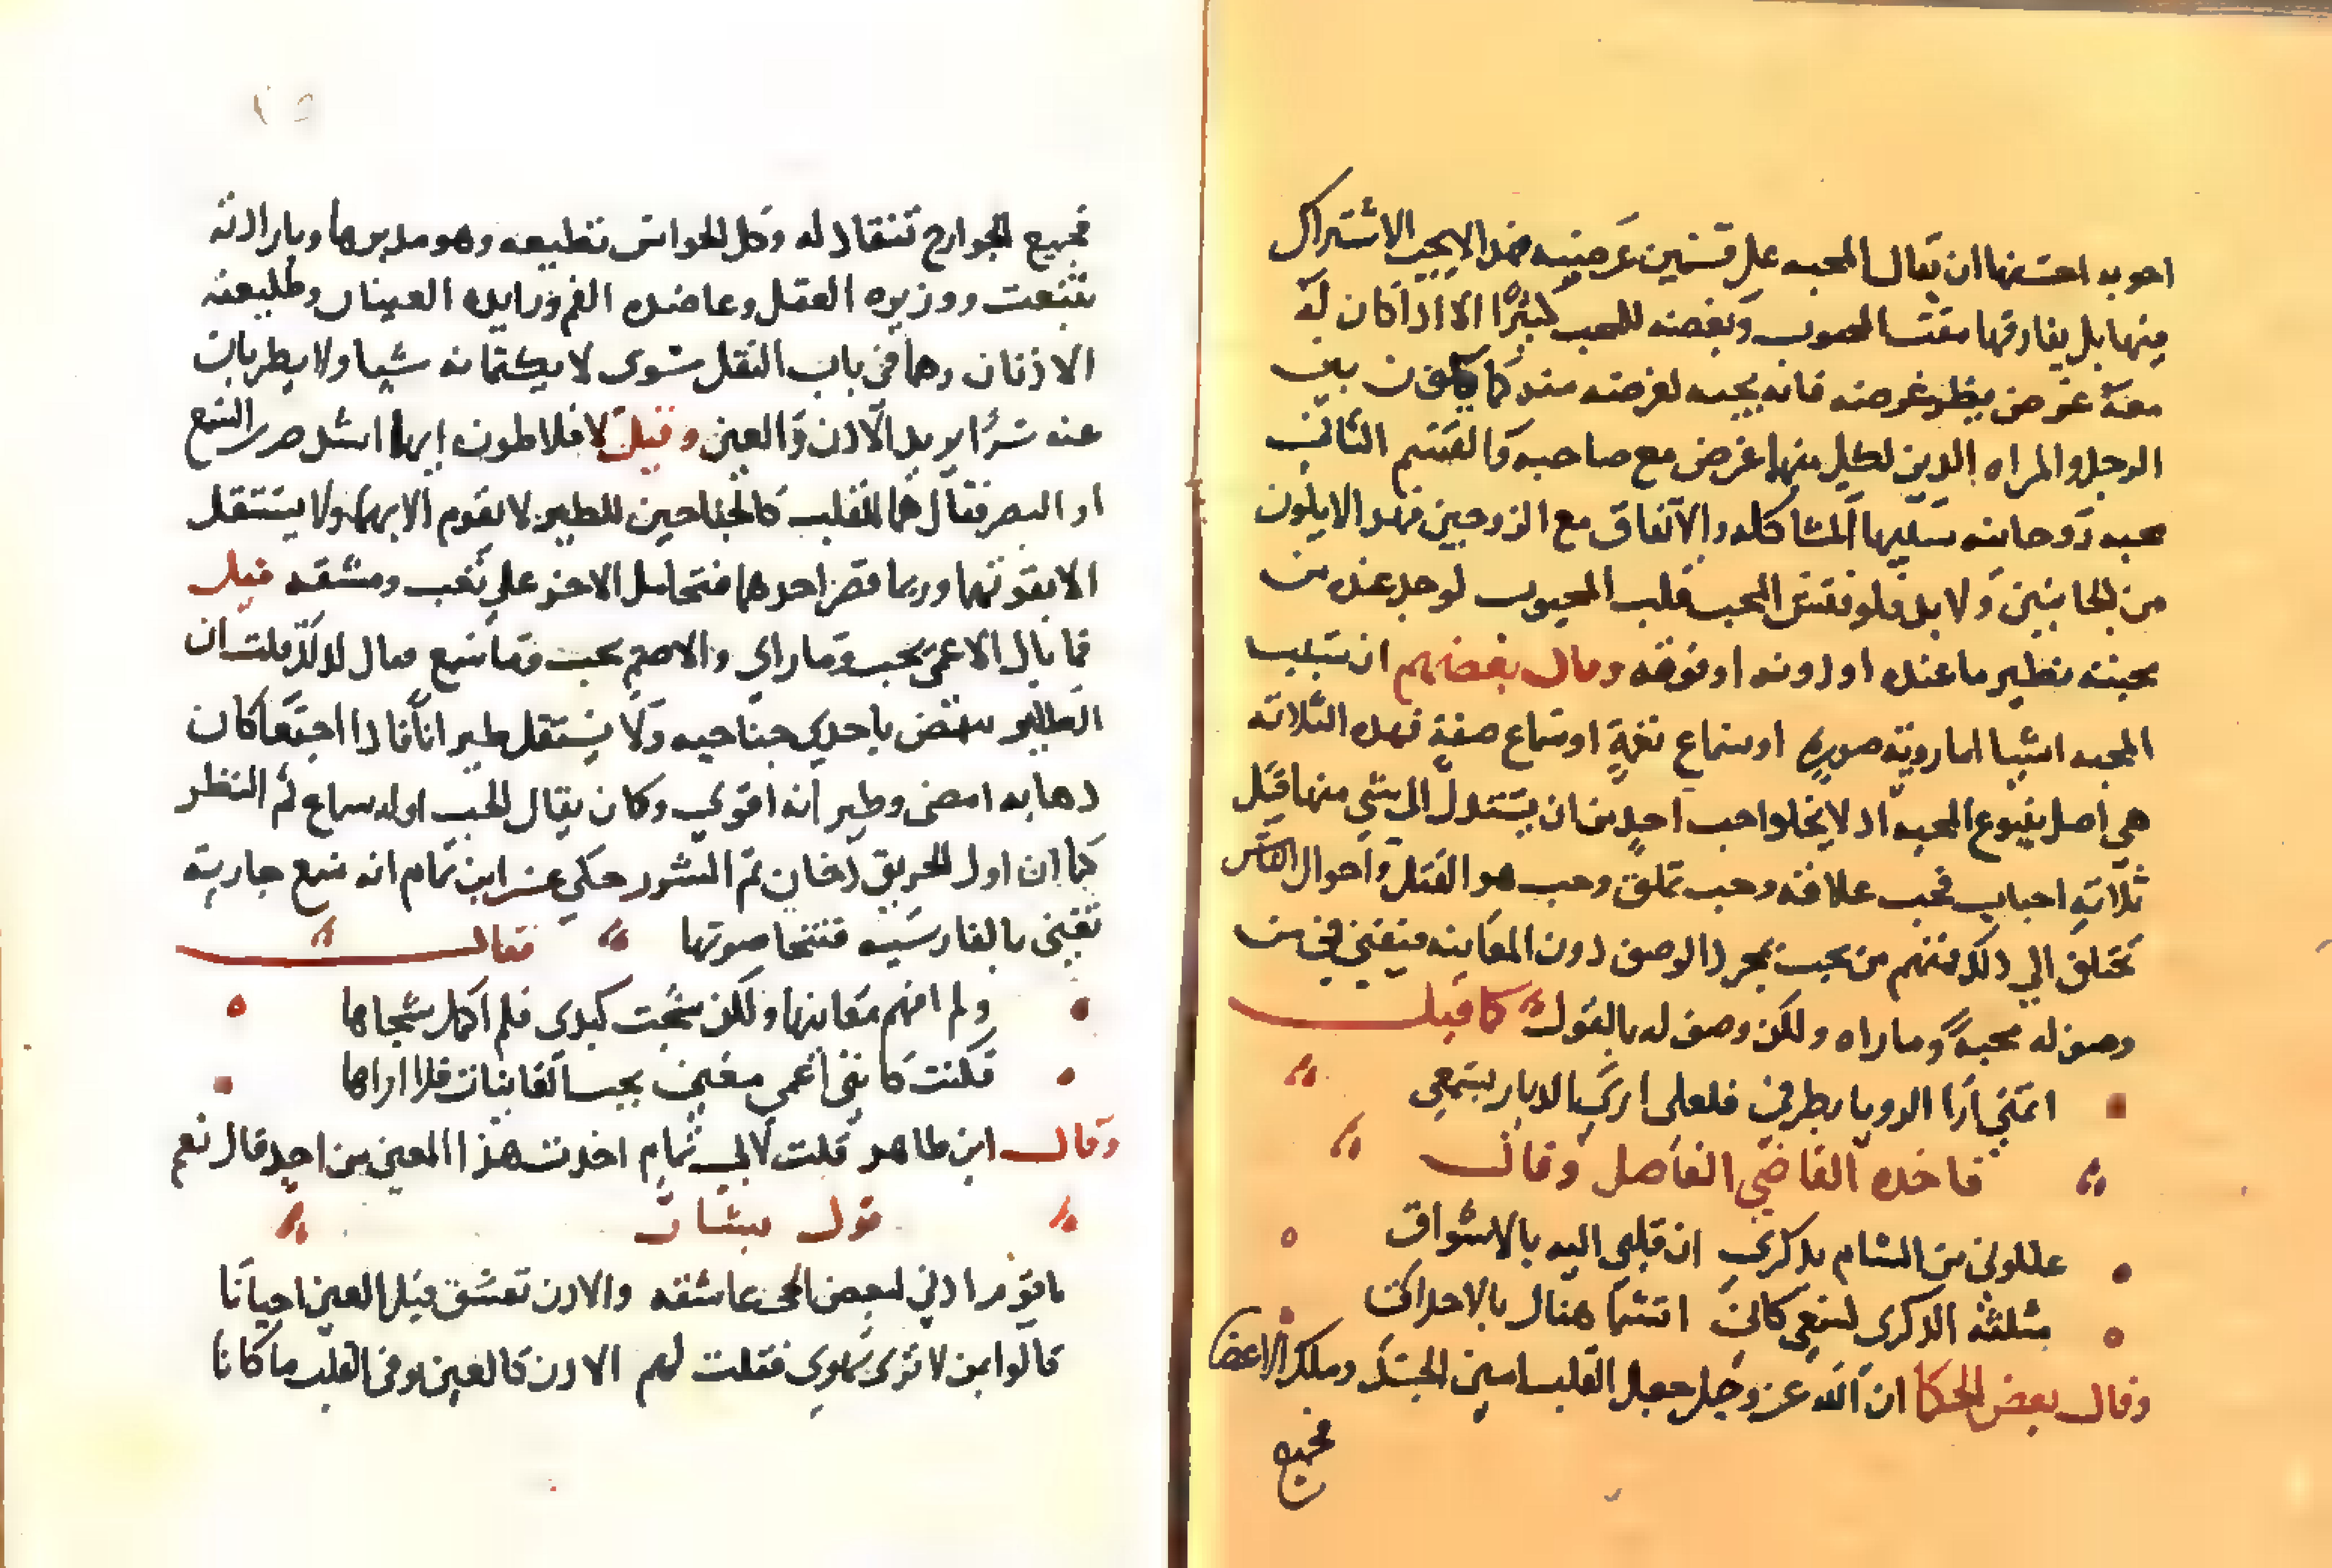 اجوبه احسنها ان يقال المحبه على قسمين عرضيه فهذا لا يجب الاشتراك
فيها بل يفارقها مقت المحبوب وبغضه للمحب كثيرا الا اذا كان له
معه غرض نظير غرضه فانه يحبه لغرضه منه كما يكون بين
الرجل والمراه الذين لكل منهما غرض مع صاحبه والقسم الثاني
محبه روحانيه سببها المشاكله والاتفاق مع الزوجين فهذا لا يكون
من الجانبين ولا بد فلو فتش المحب قلب المحبوب لوجد عنده من
محبته نظير ما عنده او دونه او فوقه وقال بعضهم ان سبب
المحبه اشيا اما روية صورة او سماع نغمة او سماع صفة فهذه الثلاثه
هي اصل ينبوع المحبه اذ لا يخلوا حب احد من ان يستدل الى شي منها قيل
ثلاثة احباب فحب علاقه وحب تملق وحب هو القتل واحوال الناس
تختلف الي ذلك فمنهم من يحب بمجرد الوصف دون المعاينه فيفني في من
وصف له محبة وما راه ولكن وصف له بالقول كما قيل
اتمني ارا الديار بطرفي فلعلى ارى الديار بسمعي
فاخذه القاضي الفاضل وقال
عللوني من الشام بذكرى ان قلبي اليه بالاشواق
مثلته الذكرى لسمعي كاني اتشما هناك بالاحداق
وقال بعض الحكما ان الله عز وجل جعل القلب امير الجسد وملك الاعضا
فجميع
فجميع الجوارح تنقاد له وكل الحواس تطيعه وهو مدبرها وبارادته
تنبعث ووزيره العقل وعاضده الفهم ورايده العينان وطليعته
الاذنان وهما في باب النقل سوى لا يكتمانه شيا ولا يطريان
عنه سرا يريد الاذن والعين وقيل لافلاطون ايهما اشد ضرر السمع
او البصر فقال هما للقلب كالجناحين للطير لا يقوم الا بهما ولا يستقل
الا بقوتهما وربما قصر احدهما فتحامل الاخر على تعب ومشقه قيل
فما بال الاعمى يحب وما راى والاصم يحب وما سمع قال لذلك قلت ان
الطير ينهض باحدي جناحيه ولا يستقل طيرانا فاذا اجتمعا كان
ذهابه امضى وطيرانه اقوى وكان يقال الحب اوله سماع ثم النظر
كما ان اول الحريق دخان ثم الشرر حكي عن ابن تمام انه سمع جارية
تغني بالفارسيه فشجا صوتها فقال
ولم افهم معانيها ولكن شجت كبدى فلم اكمل شجاها
فكنت كانني اعمى معنى يحب الغانيات فلا اراها
وقال ابن طاهر قلت لابي تمام اخذت هذا المعني من احد قال نعم
قول بشار
ياقوم اذني لبعض الحى عاشقه والاذن تعشق قبل العين احيانا
قالوا بمن لا ترى تهوى فقلت لهم الاذن كالعين توفى القلب ما كانا